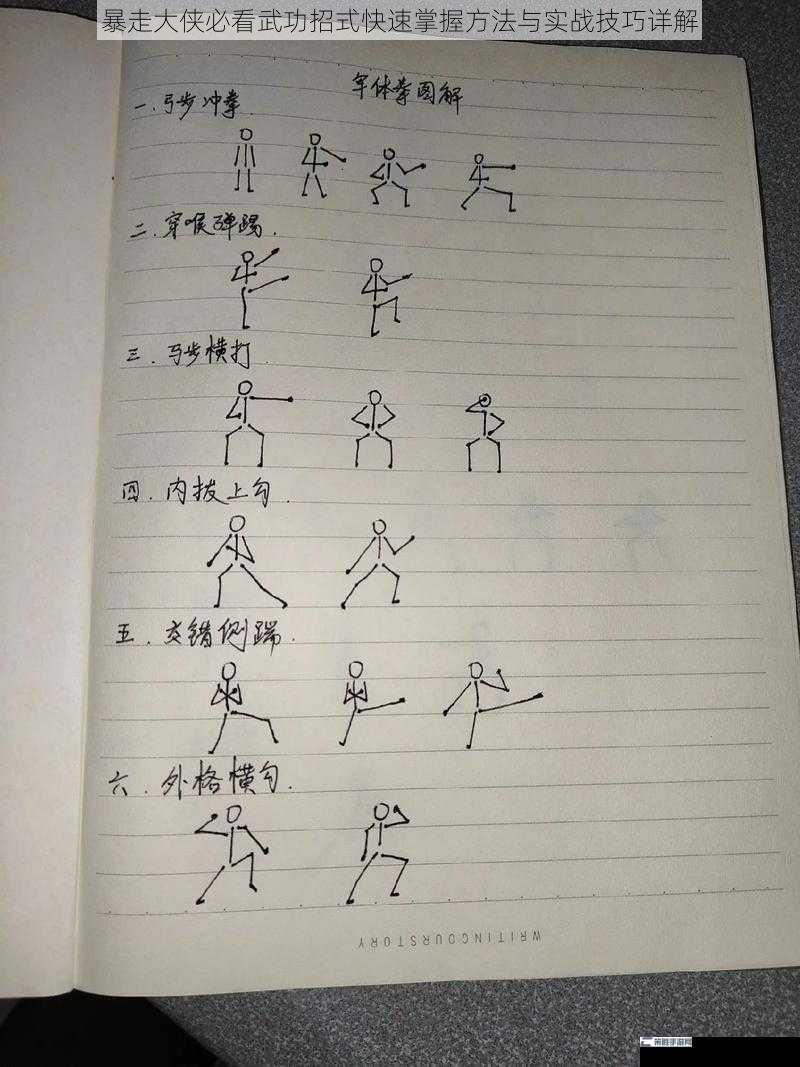 暴走大侠必看武功招式快速掌握方法与实战技巧详解
军体拳图解
一.弓步冲拳.
二.穿喉弹踢.
三.马步横打
四.内拨上勾.
五.交错侧踹.
六.外格横勾.
WRITINGOURSTORY